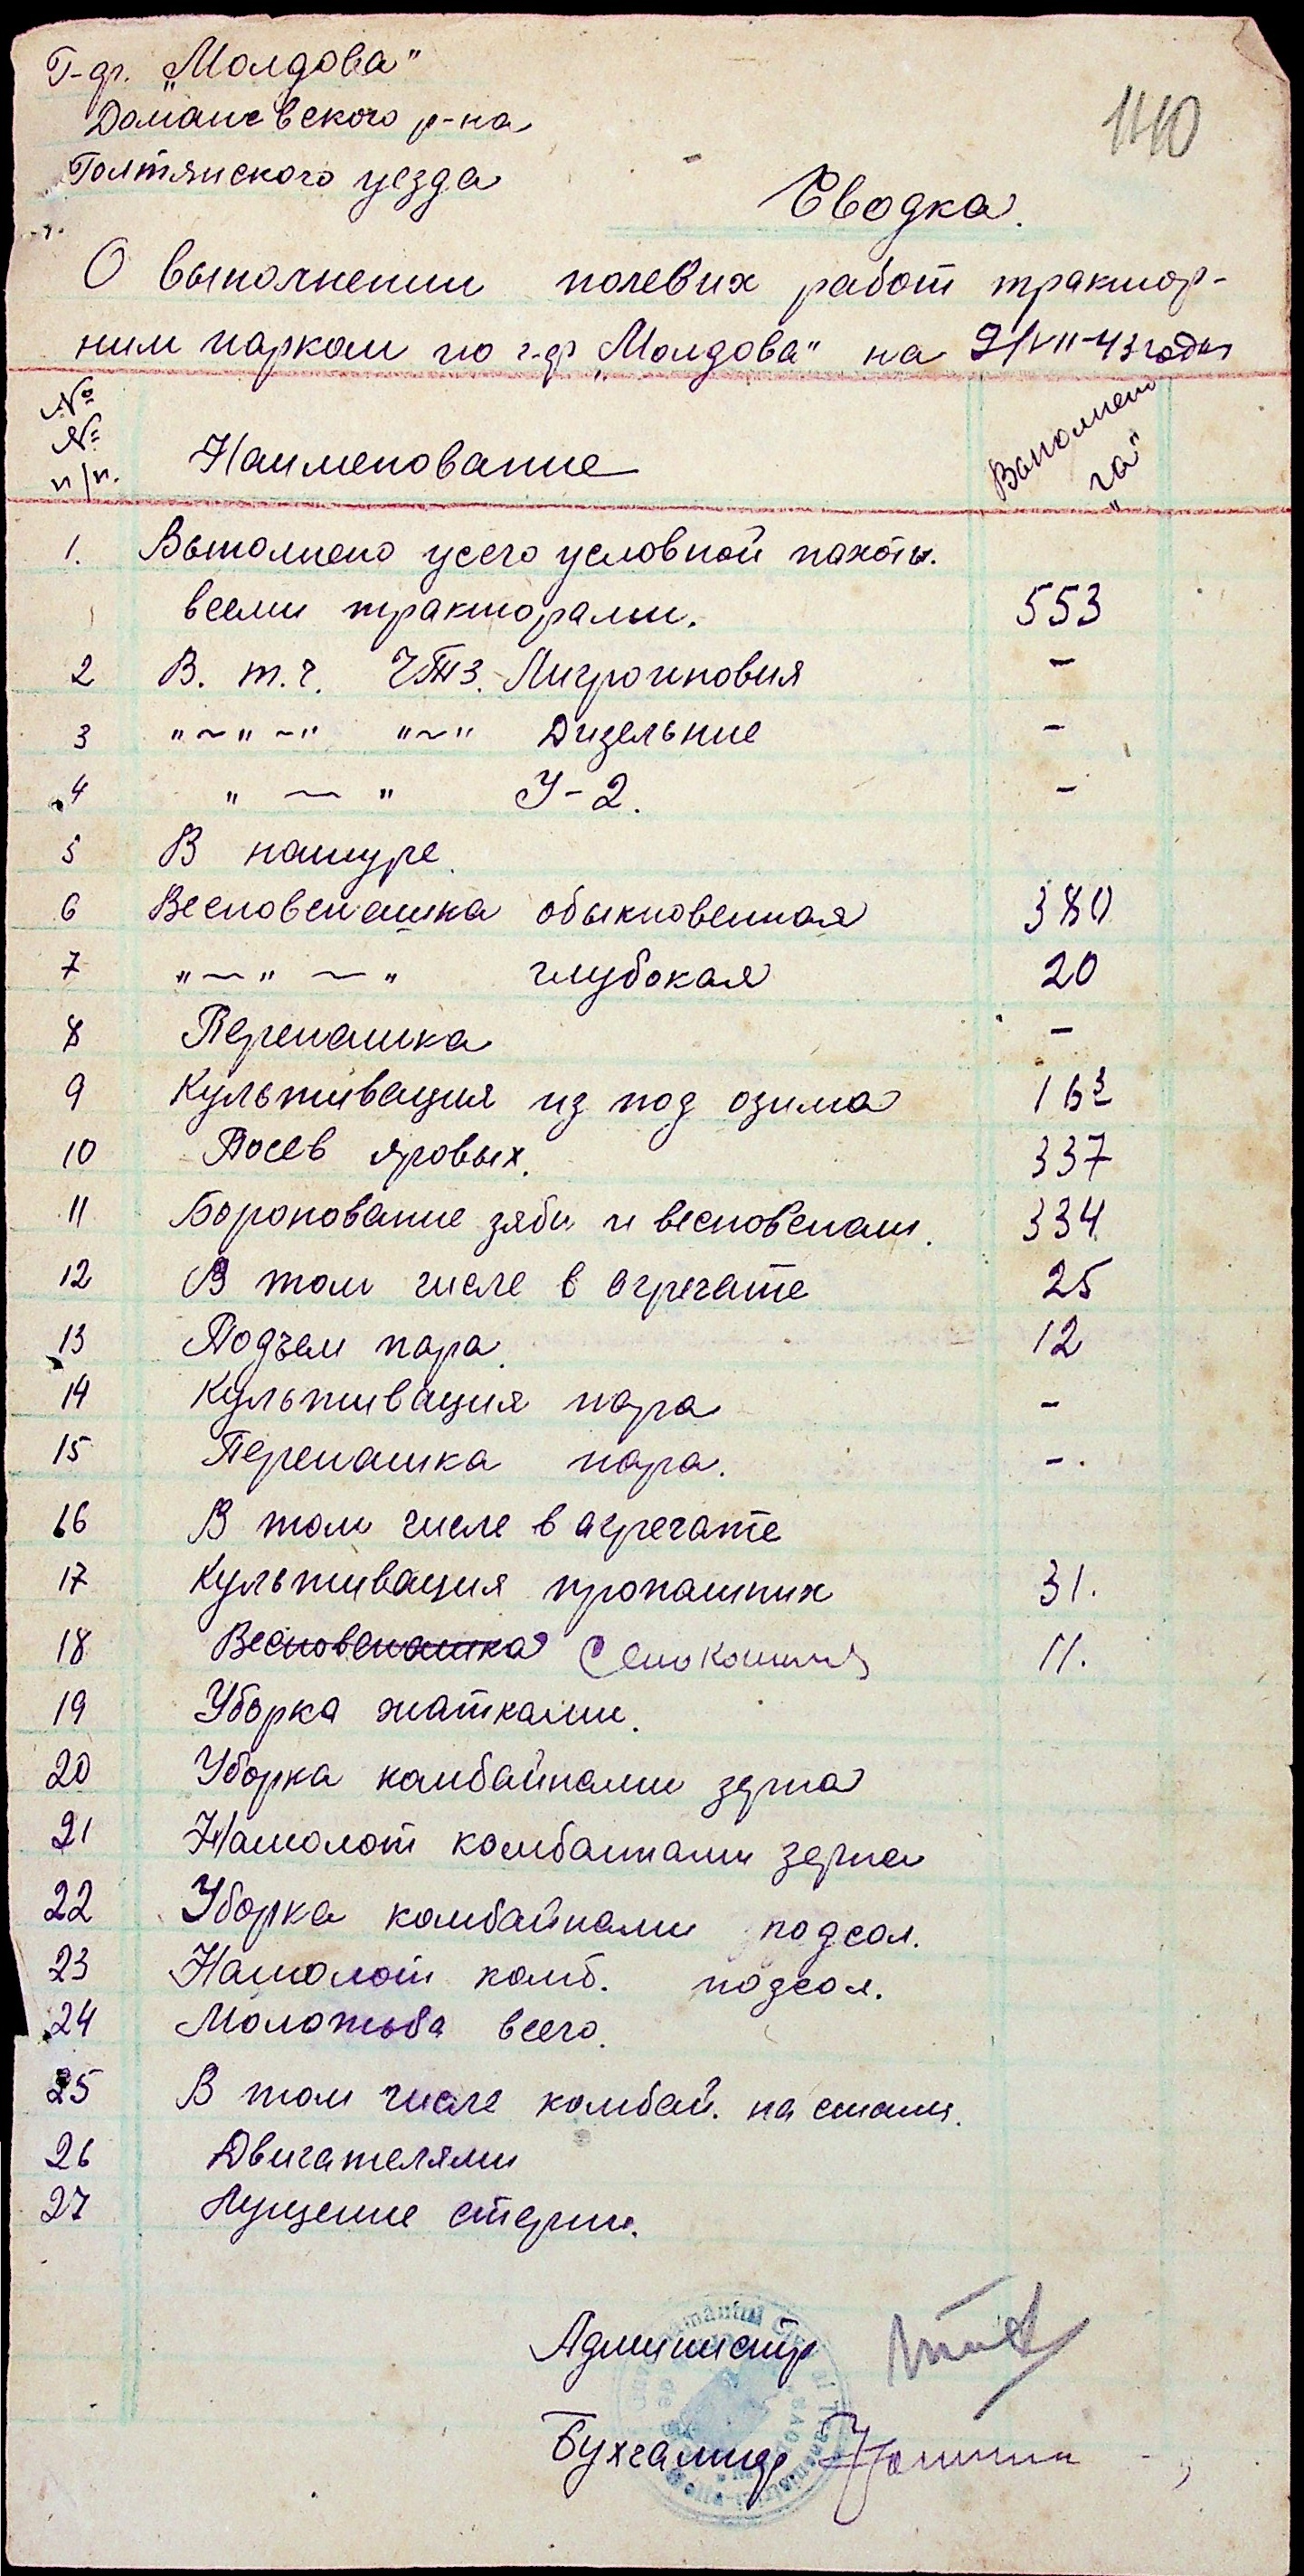 Г-др. „Молдова"
Доманевского р-на
Голтянского уезда
140
Сводка.
О выполнении полевих работ трактор-
ним парком по г-др „Молдова" на VII-43 года
№
№
п/п.
Наименование
Выполнен
„га"
1. Выполнено усего условной пахоты.
всеми тракторами. 553
2 В. т.ч. ЧТЗ. Лигроиновия -
3 "~"~" "~" Дизельние -
4 " — " У-2. -
5 В натуре.
6 Весновспашка обыкновенная 380
7 "—" — " глубокая 20
8 Перепашка -
9 Культивация из под озима 163
10 Посев яровых. 337
11 Боронование зяби и весновспаш. 334
12 В том числе в агрегате 25
13 Подъем пара. 12
14 Культивация пара -
15 Перепашка пара. -.
16 В том числе в агрегате
17 Культивация пропашних 31.
18 Весновспашка 11.
19 Уборка жатками.
20 Уборка комбайнами зерна
21 Намолот комбаинами зерна
22 Уборка комбайнами подсол.
23 Намолот комб. подсол.
24 Молотьба всего.
25 В том числе комбай. на стации.
26 Двигателями
27 Лущение стерни.
Администр
Бухгалтер